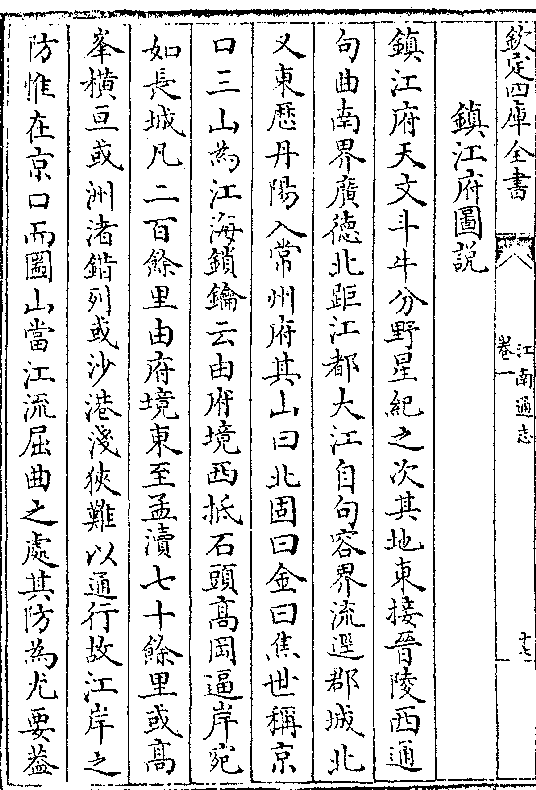 欽定四庫全書
江南通志
卷一
十七
鎮江府圖說
鎮江府天文斗牛分野星紀之次其地東接晉陵西通
句曲南界廣德北距江都大江自句容界流逕郡城北
又東歷丹陽入常州府其山曰北固曰金曰焦世稱京
口三山為江海鎖鑰云由府境西抵石頭高岡逼岸宛
如長城凡二百餘里由府境東至孟瀆七十餘里或高
峯橫亘或洲渚錯列或沙港淺狹難以通行故江岸之
防惟在京口而圌山當江流屈曲之處其防為尤要葢